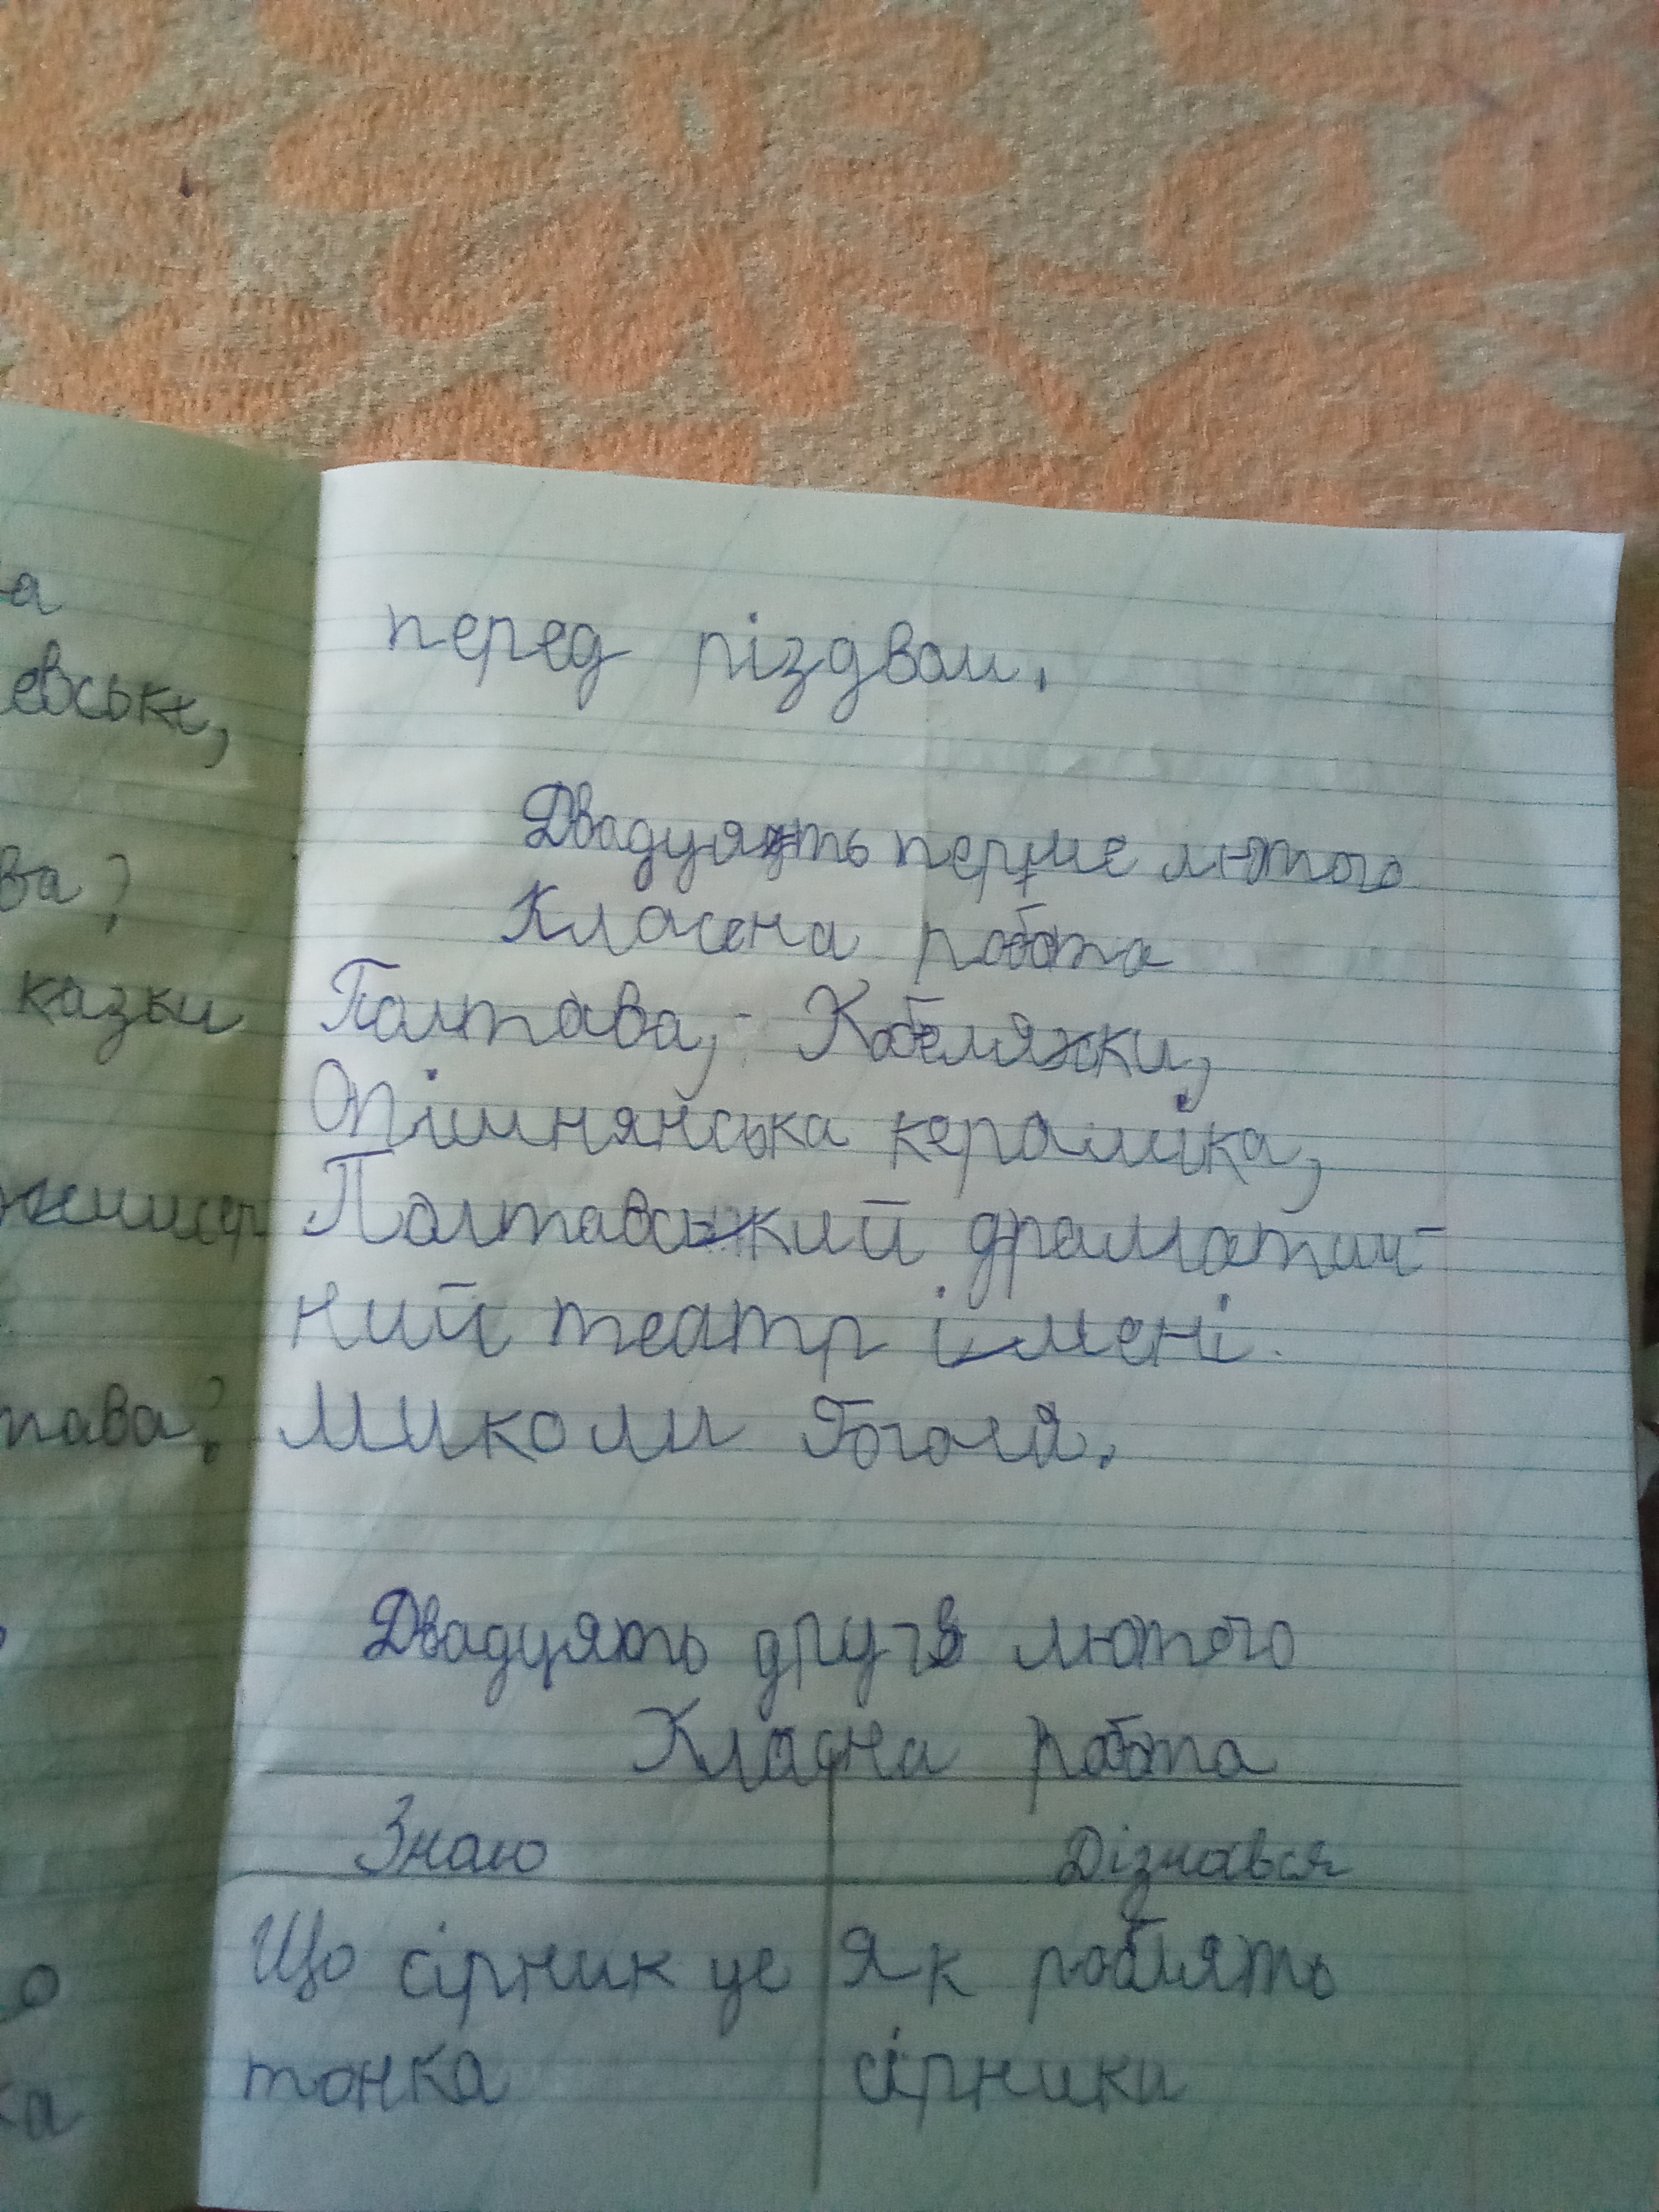 а
евське,
ва?
казки
тава?
о
ка
перед різдвом.
Двадцять перше лютого
Класна робота
Полтава, Кобеляжки,
Опішнянська кераміка,
Полтавський драматич-
ний театр імені
Миколи Гоголя.
Двадцять друге лютого
Класна робота
Знаю Дізнався
Що сірник це Як роблять
тонка сірники